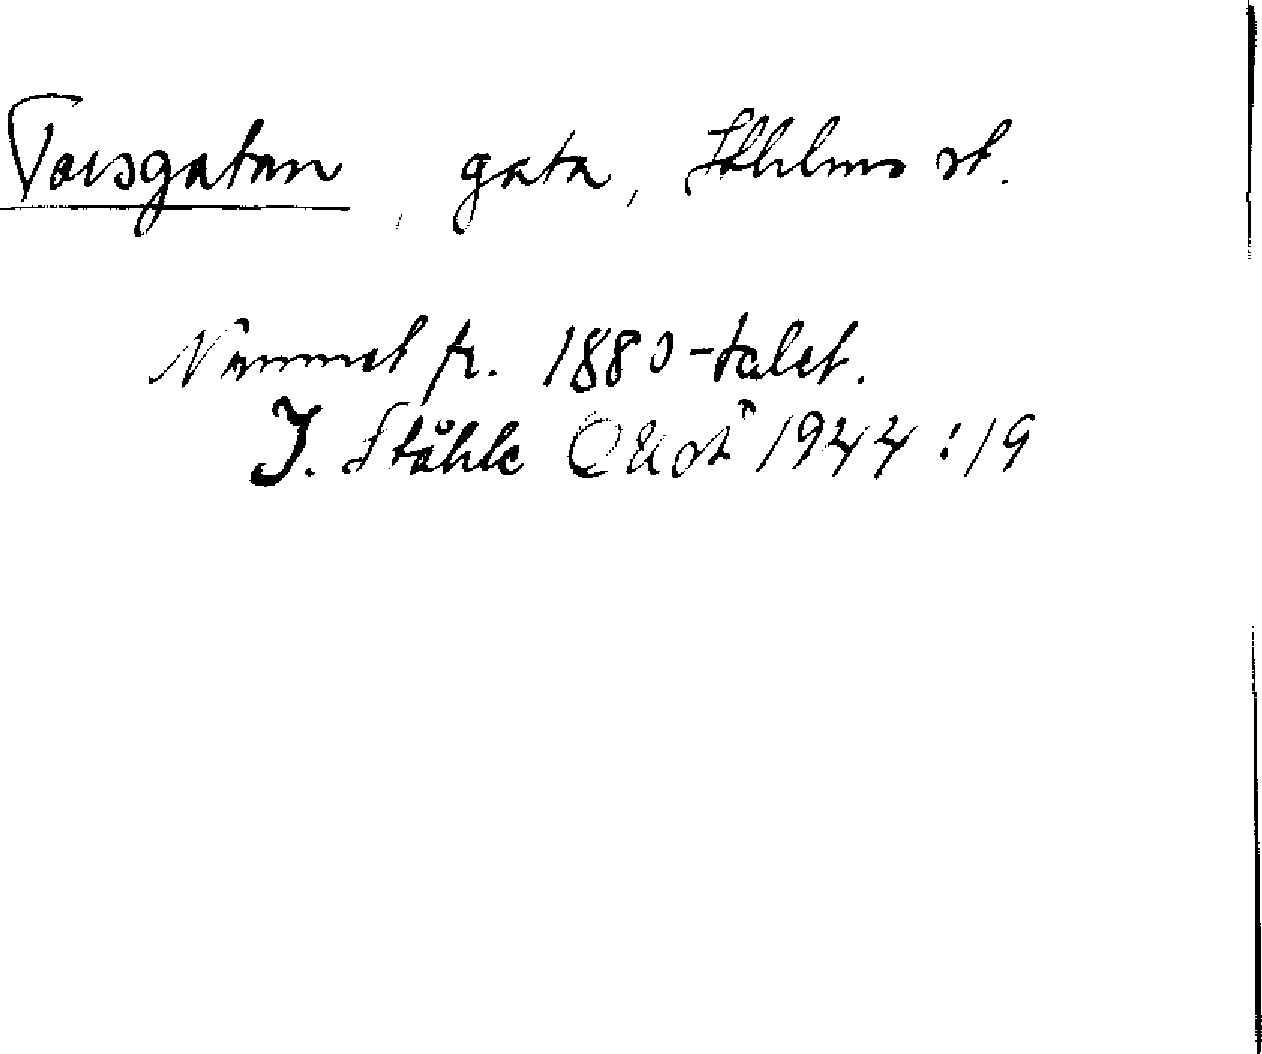 Torsgatan, gata, Sthlms st.
Namnet fr. 1880-talet.
J. Ståhle 1944:19